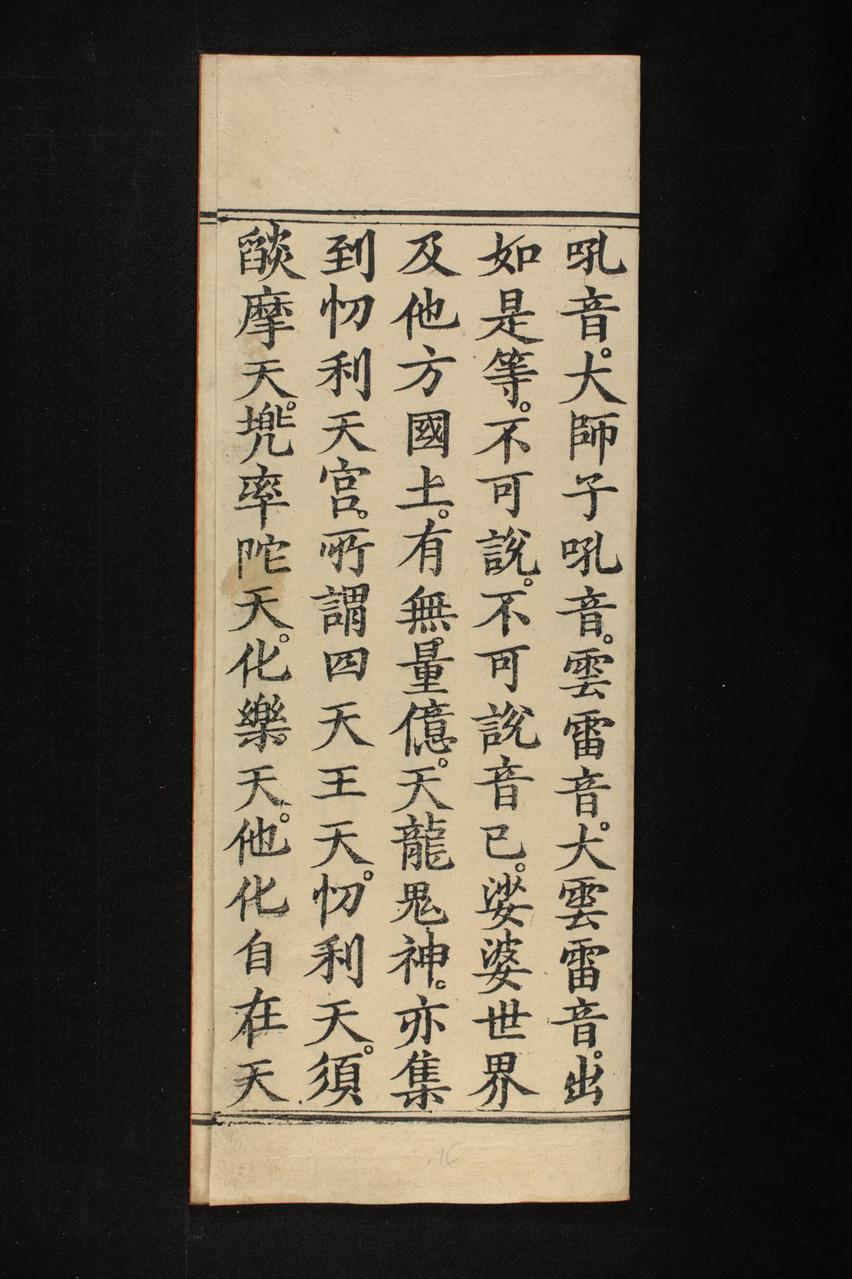 吼音。大師子吼音。雲雷音。大雲雷音。出
如是等。不可說。不可說音已。娑婆世界
及他方國土。有無量億。天龍鬼神。亦集
到忉利天宮。所謂四天王天。忉利天。須
燄摩天。兠率陀天。化樂天。他化自在天
16